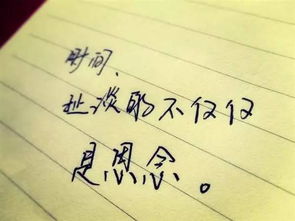 时间，
让淡的不仅仅
是思念。